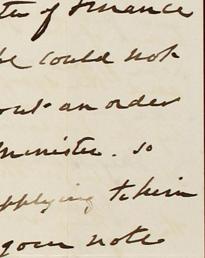 ter of Finance
he could not
out an order
Minister. so
applying to him
your note